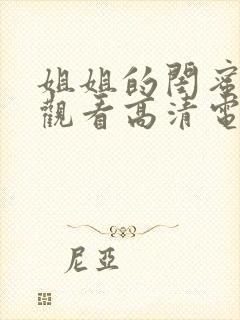 姐姐的閨蜜
觀看高清電
尼亞